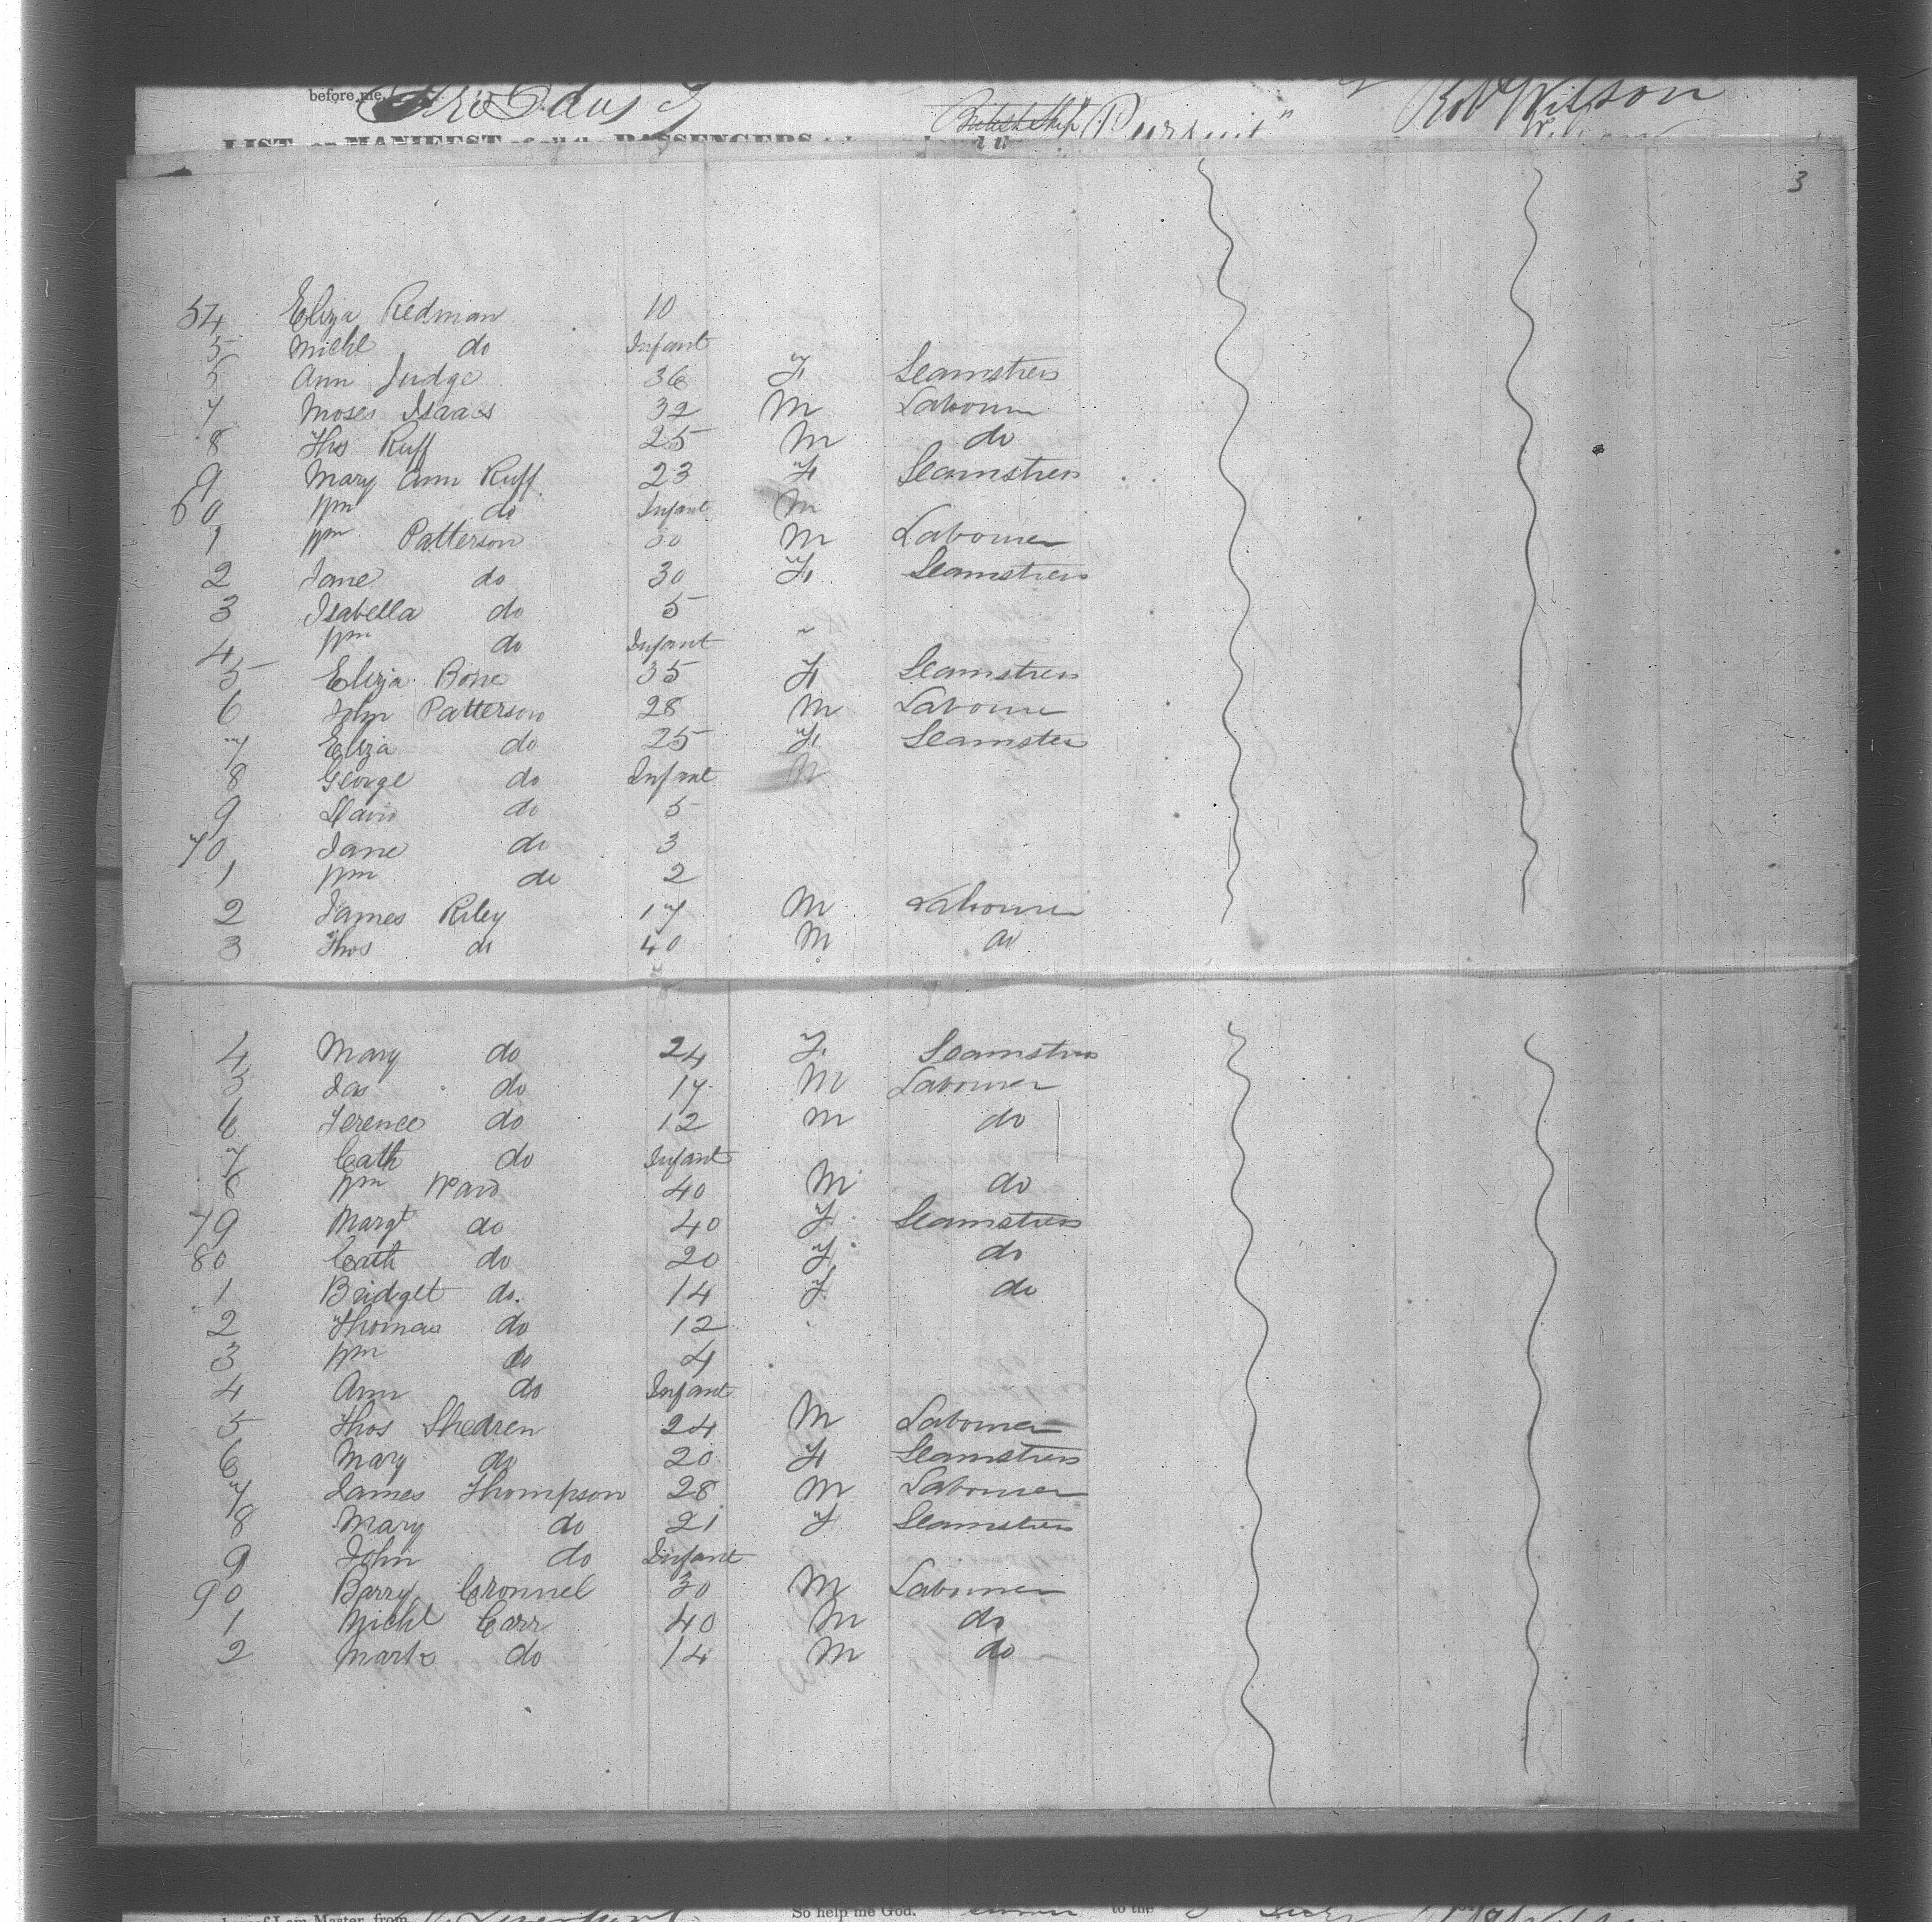 before me,
British Ship "Pursuit" Robt Wilson
LIST or MANIFEST of all the PASSENGERS
3
54 Eliza Redman 10
5 Michl do Infant
5 Ann Judge 36 F Seamstress
7 Moses Isaacs 32 M Labourer
8 Thos Ruff 25 M do
9 Mary Ann Ruff 23 F Seamstress
60 Wm do Infant M
1 Wm Patterson 30 M Labourer
2 Jane do 30 F Seamstress
3 Isabella do 5
4 Wm do Infant "
5 Eliza Bone 35 F Seamstress
6 John Patterson 28 M Labourer
7 Eliza do 25 F Seamstress
8 George do Infant M
9 David do 5
70 Jane do 3
1 Wm do 2
2 James Riley 17 M Labourer
3 Thos do 40 M do
4 Mary do 24 F Seamstress
5 Jas do 17 M Labourer
6 Terence do 12 M do
7 Cath do Infant
8 Wm Ward 40 M do
79 Margt do 40 F Seamstress
80 Cath do 20 F do
1 Bridget do. 14 F do
2 Thomas do 12
3 Wm do 4
4 Ann do Infant
5 Thos Shedren 24 M Labourer
6 Mary do 20 F Seamstress
7 James Thompson 28 M Labourer
8 Mary do 21 F Seamstress
9 John do Infant
90 Barry Cronnel 30 M Labourer
1 Michl Carr 40 M do
2 Mark do 14 M do
So help me God. to the